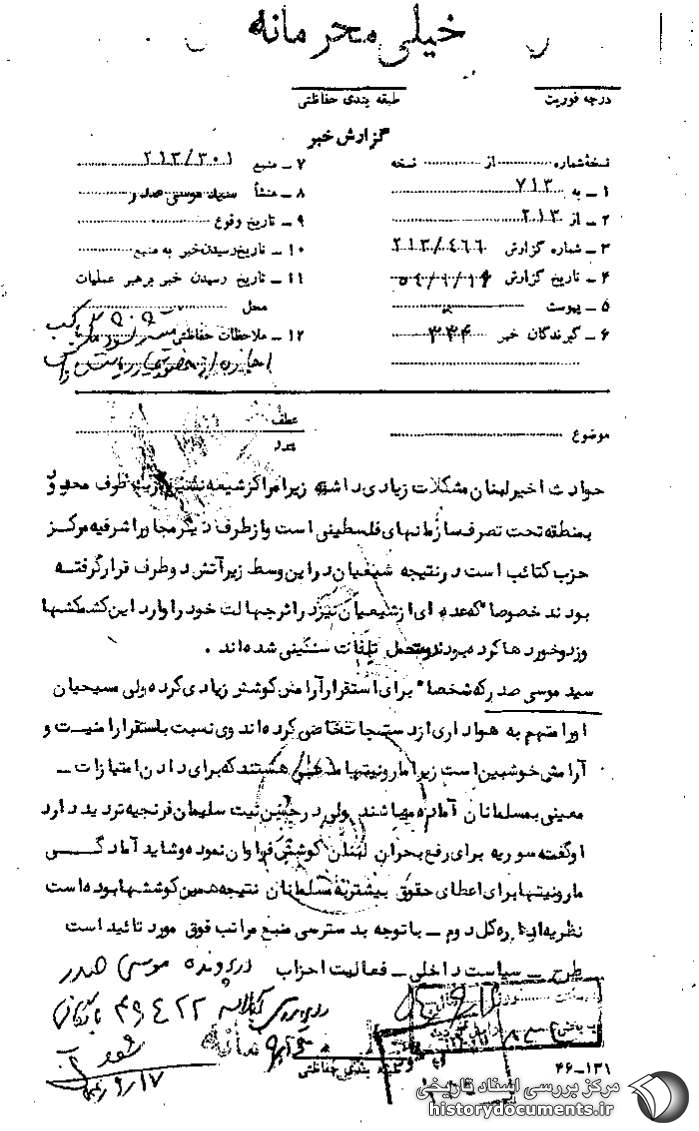 خیلی محرمانه
درجه فوریت
طبقه بندی حفاظتی
گزارش خبر
نسخهٔ شماره از نسخه
۱ - به ۷۱۳
۲ - از ۲۱۳
۳ - شماره گزارش ۲۱۳/۴۶۶
۴ - تاریخ گزارش
۵ - پیوست
۶ - گیرندگان خبر ۳۳۴
۷ - منبع ۲۱۳/۳۰۱
۸ - منشأ سید موسی صدر
۹ - تاریخ وقوع
۱۰ - تاریخ رسیدن خبر به منبع
۱۱ - تاریخ رسیدن خبر برهبر عملیات
محل
۱۲ - ملاحظات حفاظتی
موضوع
عطف
حوادث اخیر لبنان مشکلات زیادی داشته زیرا مراکز شیعه نشین از یک طرف محدود
بمنطقه تحت تصرف سازمانهای فلسطینی است و از طرف دیگر مجاور اشرفیه مرکز
حزب کتائب است در نتیجه شیعیان در این وسط زیر آتش دو طرف قرار گرفته
بودند خصوصا" که عده ای از شیعیان نیز در اثر جهالت خود را وارد این کشمکشها
و زد و خوردها کرده بودند و متحمل تلفات سنگینی شده اند .
سید موسی صدر که شخصا" برای استقرار آرامش کوشش زیادی کرده ولی مسیحیان
او را متهم به هواداری از دستجات خاصی کرده اند وی نسبت باستقرار امنیت و
آرامش خوشبین است زیرا مارونیتها مدعی هستند که برای دادن امتیازات -
معینی بمسلمانان آماده میباشند ولی در حسن نیت سلیمان فرنجیه تردید دارد
او گفته سوریه برای رفع بحران لبنان کوشش فراوان نموده و شاید آمادگی
مارونیتها برای اعطای حقوق بیشتر به مسلمانان نتیجه همین کوششها بوده است
نظریه اداره کل دوم - با توجه بدسترسی منبع مراتب فوق مورد تائید است
طرح - سیاست داخلی - فعالیت احزاب
در پرونده موسی صدر
۴۹۴۲۲
۱۷/۹
طبقه بندی حفاظتی
۴۶-۱۳۱
مرکز بررسی اسناد تاریخی
historydocuments.ir